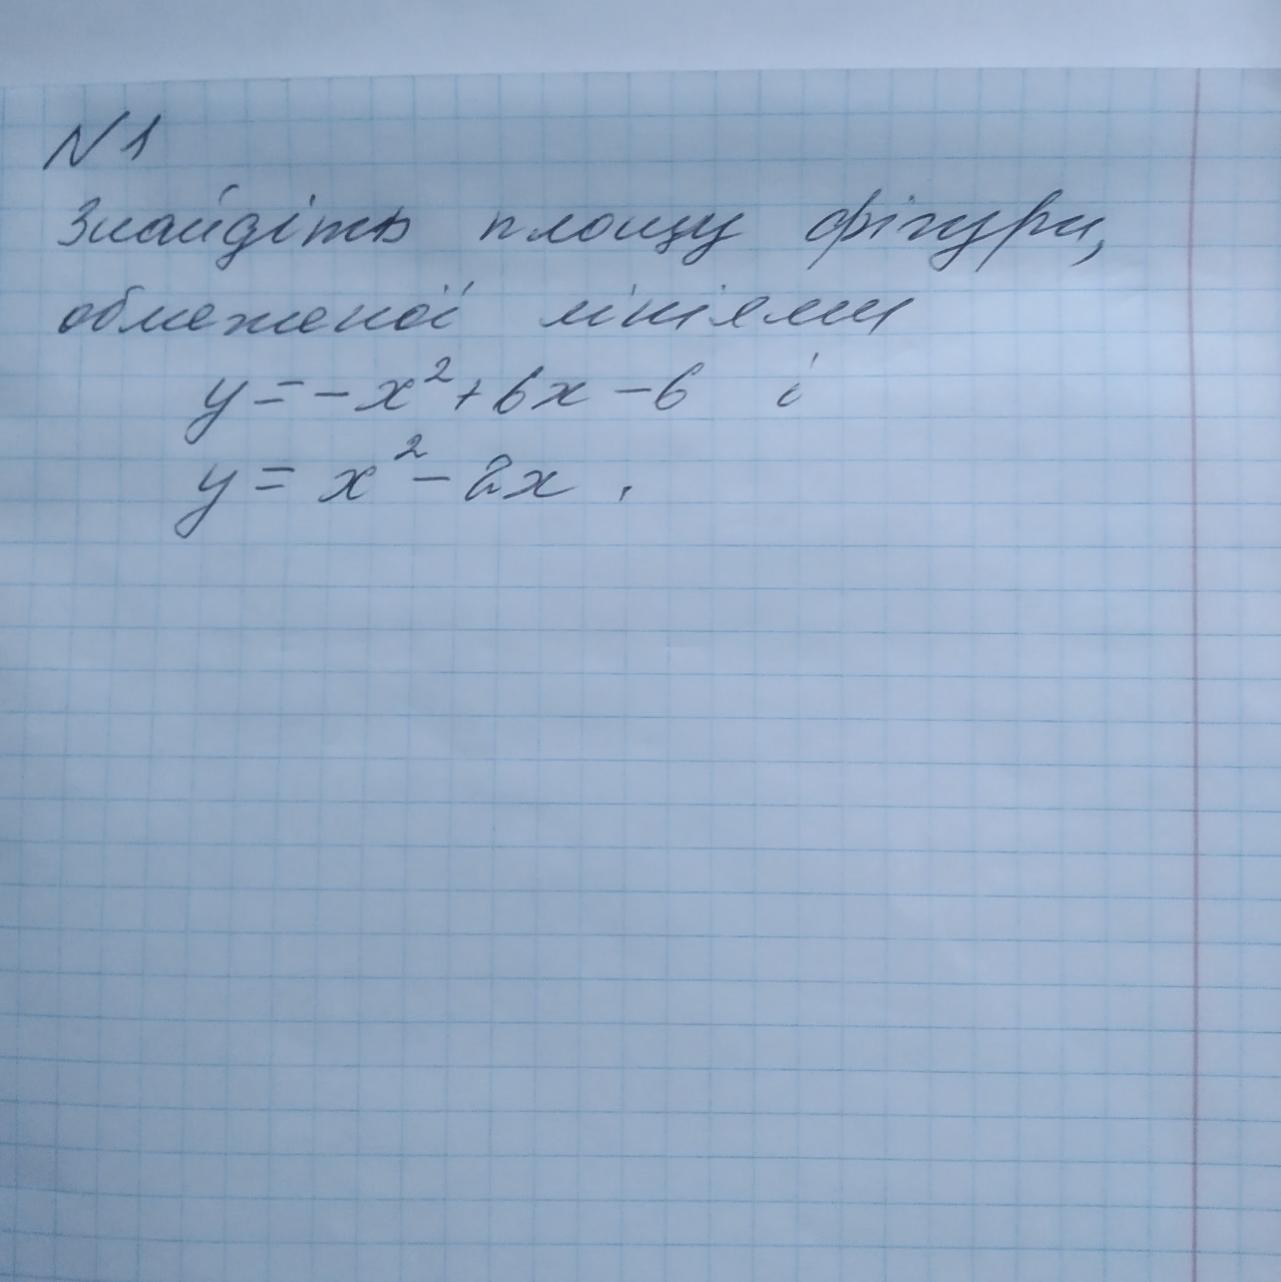 N 1
Знайдіть площу фігури,
обмеженої лініями
y = -x² + 6x - 6 і
y = x² - 2x .